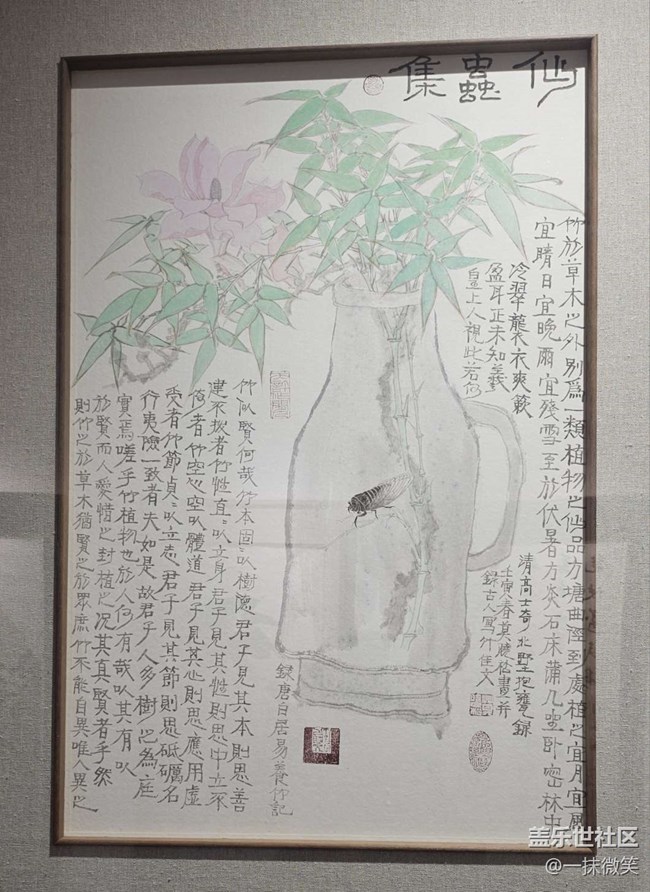 仙蟲集
竹於草木之外別為一類植物之仙品方塘曲徑到處植之宜月宜風
宜晴日宜晚雨宜殘雪至於伏暑方炎石床蒲几坐卧密林中
冷翠襲衣爽籟
盈耳正未知羲
皇上人視此若何
清高士奇北墅抱甕錄
壬寅春莫曉松畫并
錄古人寫竹佳文
竹似賢何哉竹本固以樹德君子見其本則思善
建不拔者竹性直〻以立身君子見其性則思中立不
倚者竹空心空以體道君子見其心則思應用虛
受者竹節貞〻以立志君子見其節則思砥礪名
行夷險一致者夫如是故君子人多樹之為庭
實焉嗟乎竹植物也於人何有哉以其有似
於賢而人愛惜之封植之況其真賢者乎然
則竹之於草木猶賢之於眾庶竹不能自異唯人異之
錄唐白居易養竹記
盖乐世社区
@一抹微笑